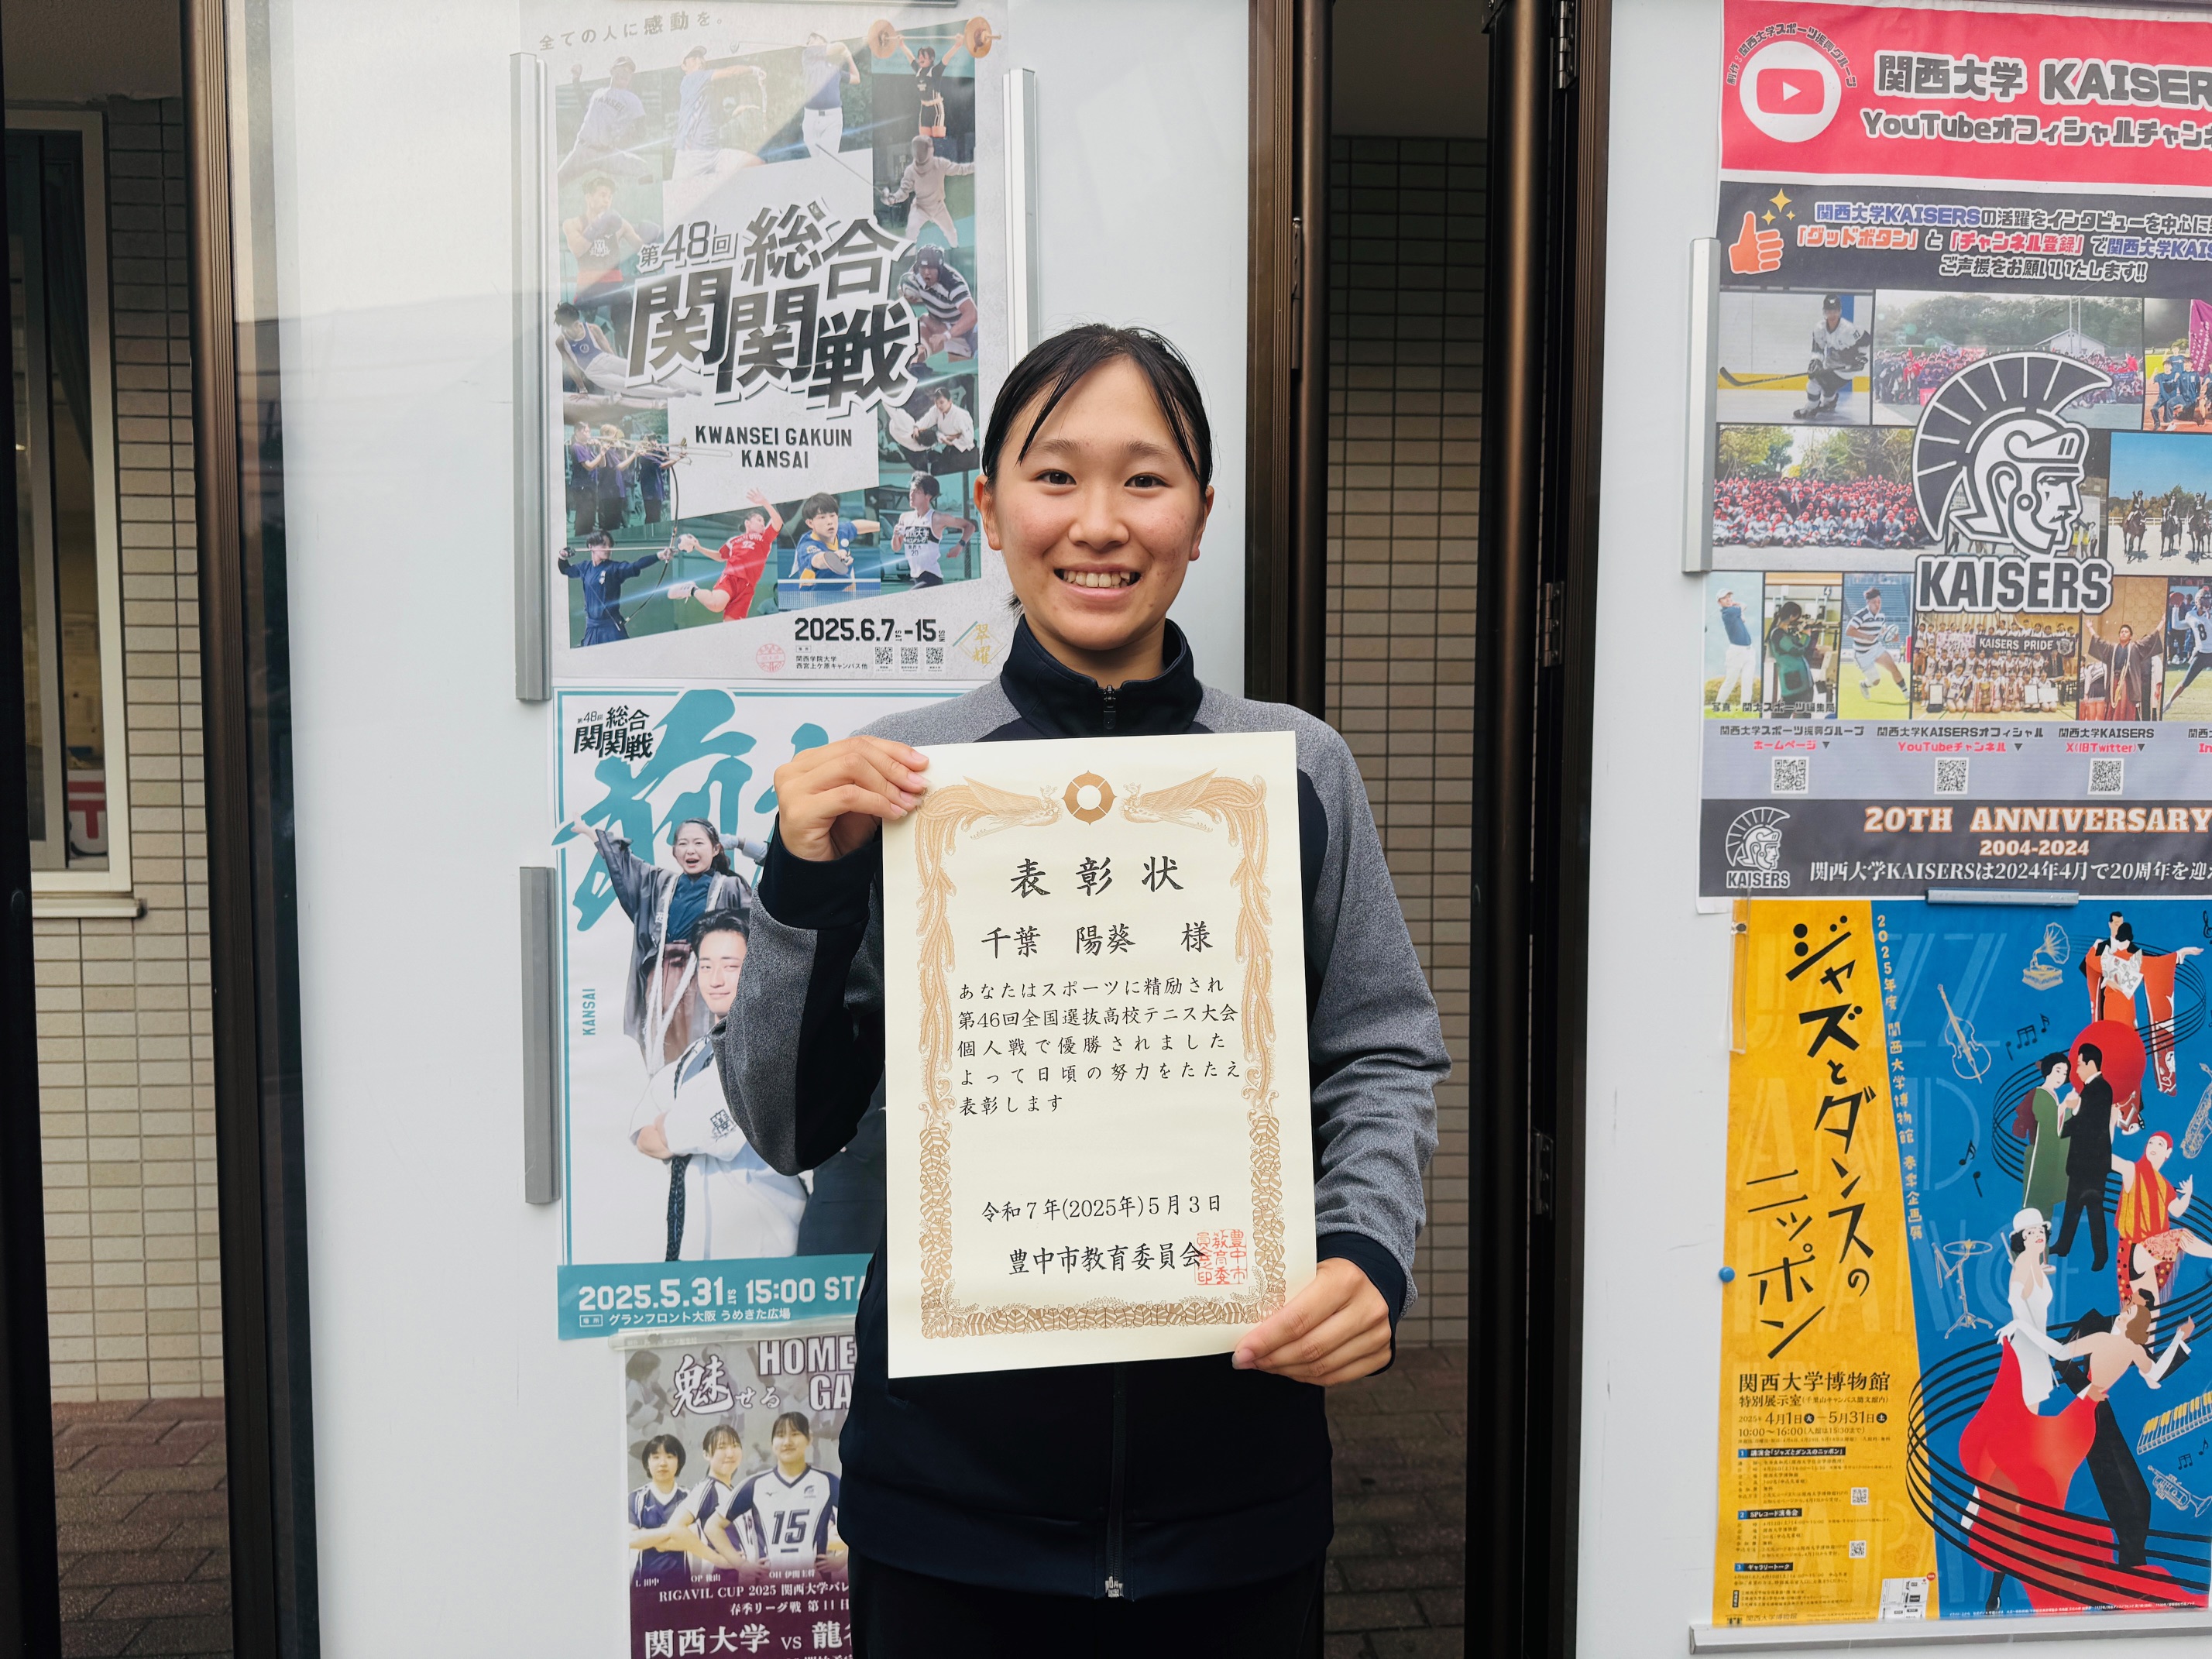 全ての人に感動を。
第48回 総合
関関戦
KWANSEI GAKUIN
KANSAI
2025.6.7 SAT -15 SUN
関西学院大学
西宮上ケ原キャンパス他
翠耀
第48回 総合
関関戦
KANSAI
2025.5.31 SAT 15:00 STA
場所 グランフロント大阪 うめきた広場
魅せる
HOME
GA
15
L 田中
OP 秋山
RIGAVIL CUP 2025 関西大学バレ
春季リーグ戦 第11日
関西大学 VS 龍
表彰状
千葉 陽葵 様
あなたはスポーツに精励され
第46回全国選抜高校テニス大会
個人戦で優勝されました
よって日頃の努力をたたえ
表彰します
令和7年(2025年)5月3日
豊中市教育委員会
関西大学 KAISER
YouTubeオフィシャルチャンネ
関西大学KAISERSの活躍をインタビューを中心に
「グッドボタン」と「チャンネル登録」で関西大学KAIS
ご声援をお願いいたします!!
KAISERS
KAISERS PRIDE
写真：関大スポーツ編集局
関西大学スポーツ振興グループ
ホームページ▼
関西大学KAISERSオフィシャル
YouTubeチャンネル ▼
関西大学KAISERS
X(旧Twitter)▼
関
In
KAISERS
20TH ANNIVERSARY
2004-2024
関西大学KAISERSは2024年4月で20周年を迎
2025年度 関西大学博物館 春季企画展
ジャズとダンスの
ニッポン
JAZZ
AND
関西大学博物館
特別展示室(千里山キャンパス簡文館内)
2025年 4月1日火－5月31日土
10:00～16:00(入館は15:30まで)
1 講演会「ジャズとダンスのニッポン」
2 SPレコード演奏会
3 ギャラリートーク
関西大学博物館